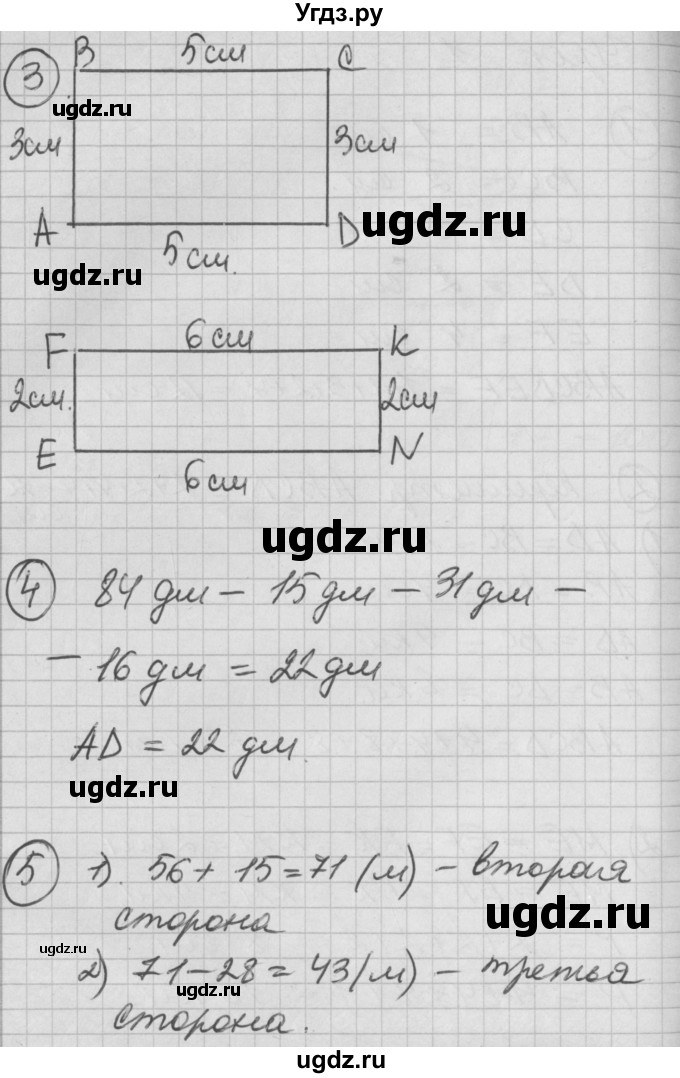 Угдз.ру
3
B 5см C
ugdz.ru
3см 3см
A D
ugdz.ru
5см.
ugdz.ru
F 6см K
2см. 2см
E N
6см
ugdz.ru
4 84 дм – 15 дм – 31 дм –
– 16 дм = 22 дм
AD = 22 дм.
ugdz.ru
5 1). 56 + 15 = 71 (м) – вторая
ugdz.ru
сторона
ugdz.ru
2) 71 – 28 = 43 (м) – третья
ugdz.ru
сторона.
ugdz.ru